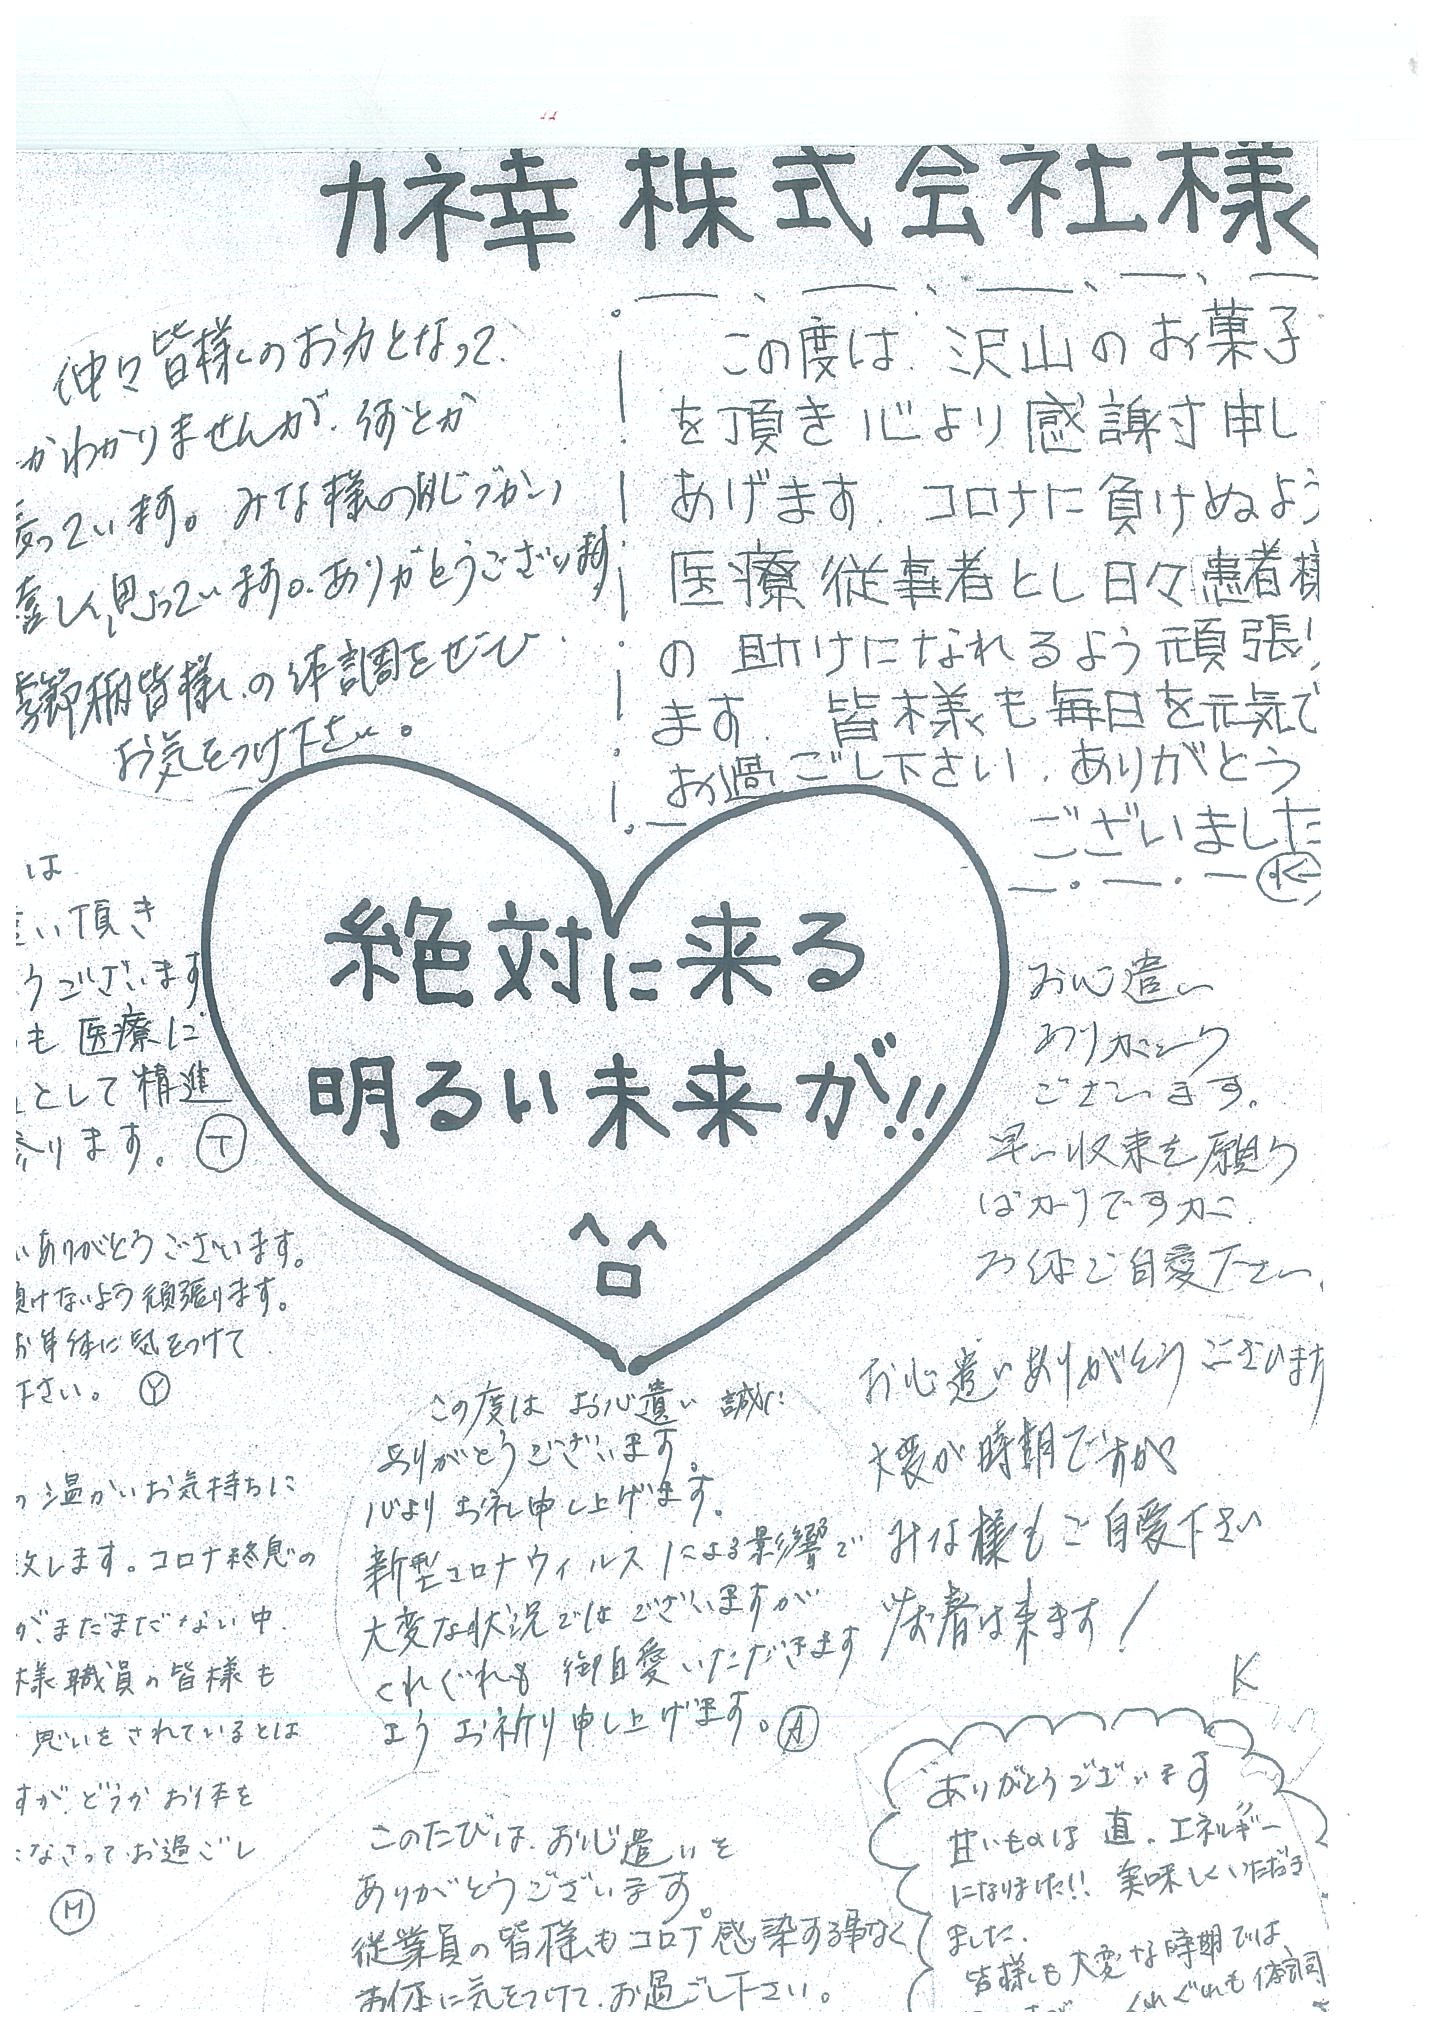 カネ幸 株式会社様
この度は、沢山のお菓子
を頂き心より感謝申し
あげます。コロナに負けぬよう
医療従事者とし日々患者様
の助けになれるよう頑張り
ます。皆様も毎日を元気で
お過ごし下さい。ありがとう
ございました
K
仲々皆様のお力となって、
かわかりませんが、何とか
っています。みな様の心づかい
嬉しく思っています。ありがとうございます
皆様の体調をぜひ
お気をつけ下さい。
絶対に来る
明るい未来が!!
は
い頂き
うございます
も医療に
として精進
参ります。 T
お心遣い
ありがとう
ございます。
早い収束を願う
ばかりですが、
お体ご自愛下さい。
いありがとうございます。
負けないよう頑張ります。
お身体に気をつけて
下さい。 Y
お心遣いありがとうございます
大変な時期ですが
みな様もご自愛下さい
春は来ます!
K
この度はお心遣い誠に
ありがとうございます。
心よりお礼申し上げます。
新型コロナウィルスによる影響で
大変な状況ではございますが
くれぐれも御自愛いただきます
ようお祈り申し上げます。 A
の温かいお気持ちに
致します。コロナ終息の
が、まだまだない中、
様職員の皆様も
思いをされているとは
すが、どうかお体を
なさってお過ごし
M
このたびは、お心遣いを
ありがとうございます。
従業員の皆様もコロナ感染する事なく
お体に気をつけて、お過ごし下さい。
ありがとうございます
甘いものは直、エネルギー
になりました!! 美味しくいただき
ました。
皆様も大変な時期では
くれぐれも体調